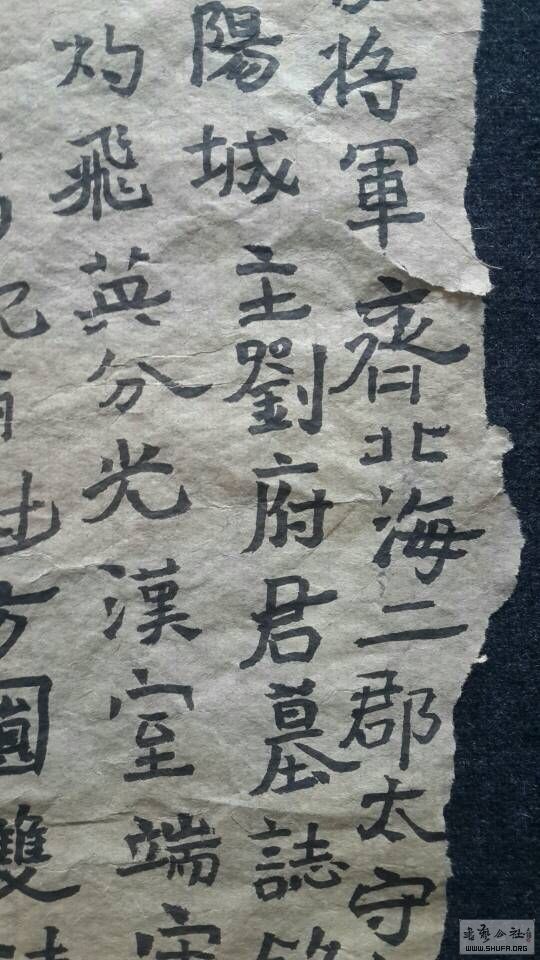 將軍齊北海二郡太守
陽城主劉府君墓誌
灼飛英分光漢室端
方圓雙
书艺公社
WWW.SHUFA.ORG